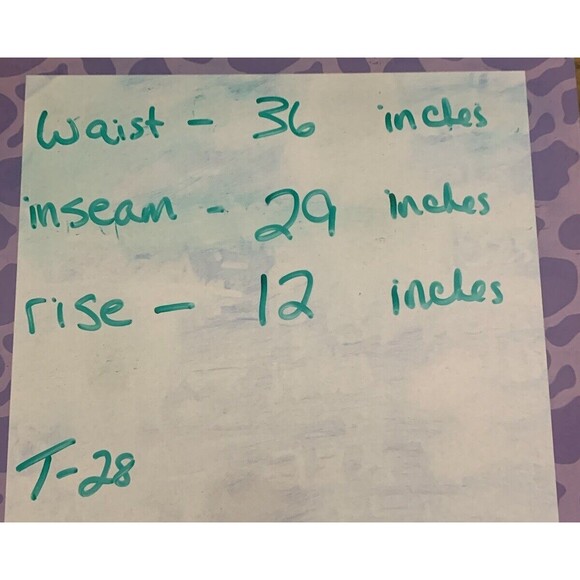 Waist - 36 inches
inseam - 29 inches
rise - 12 inches
T-28